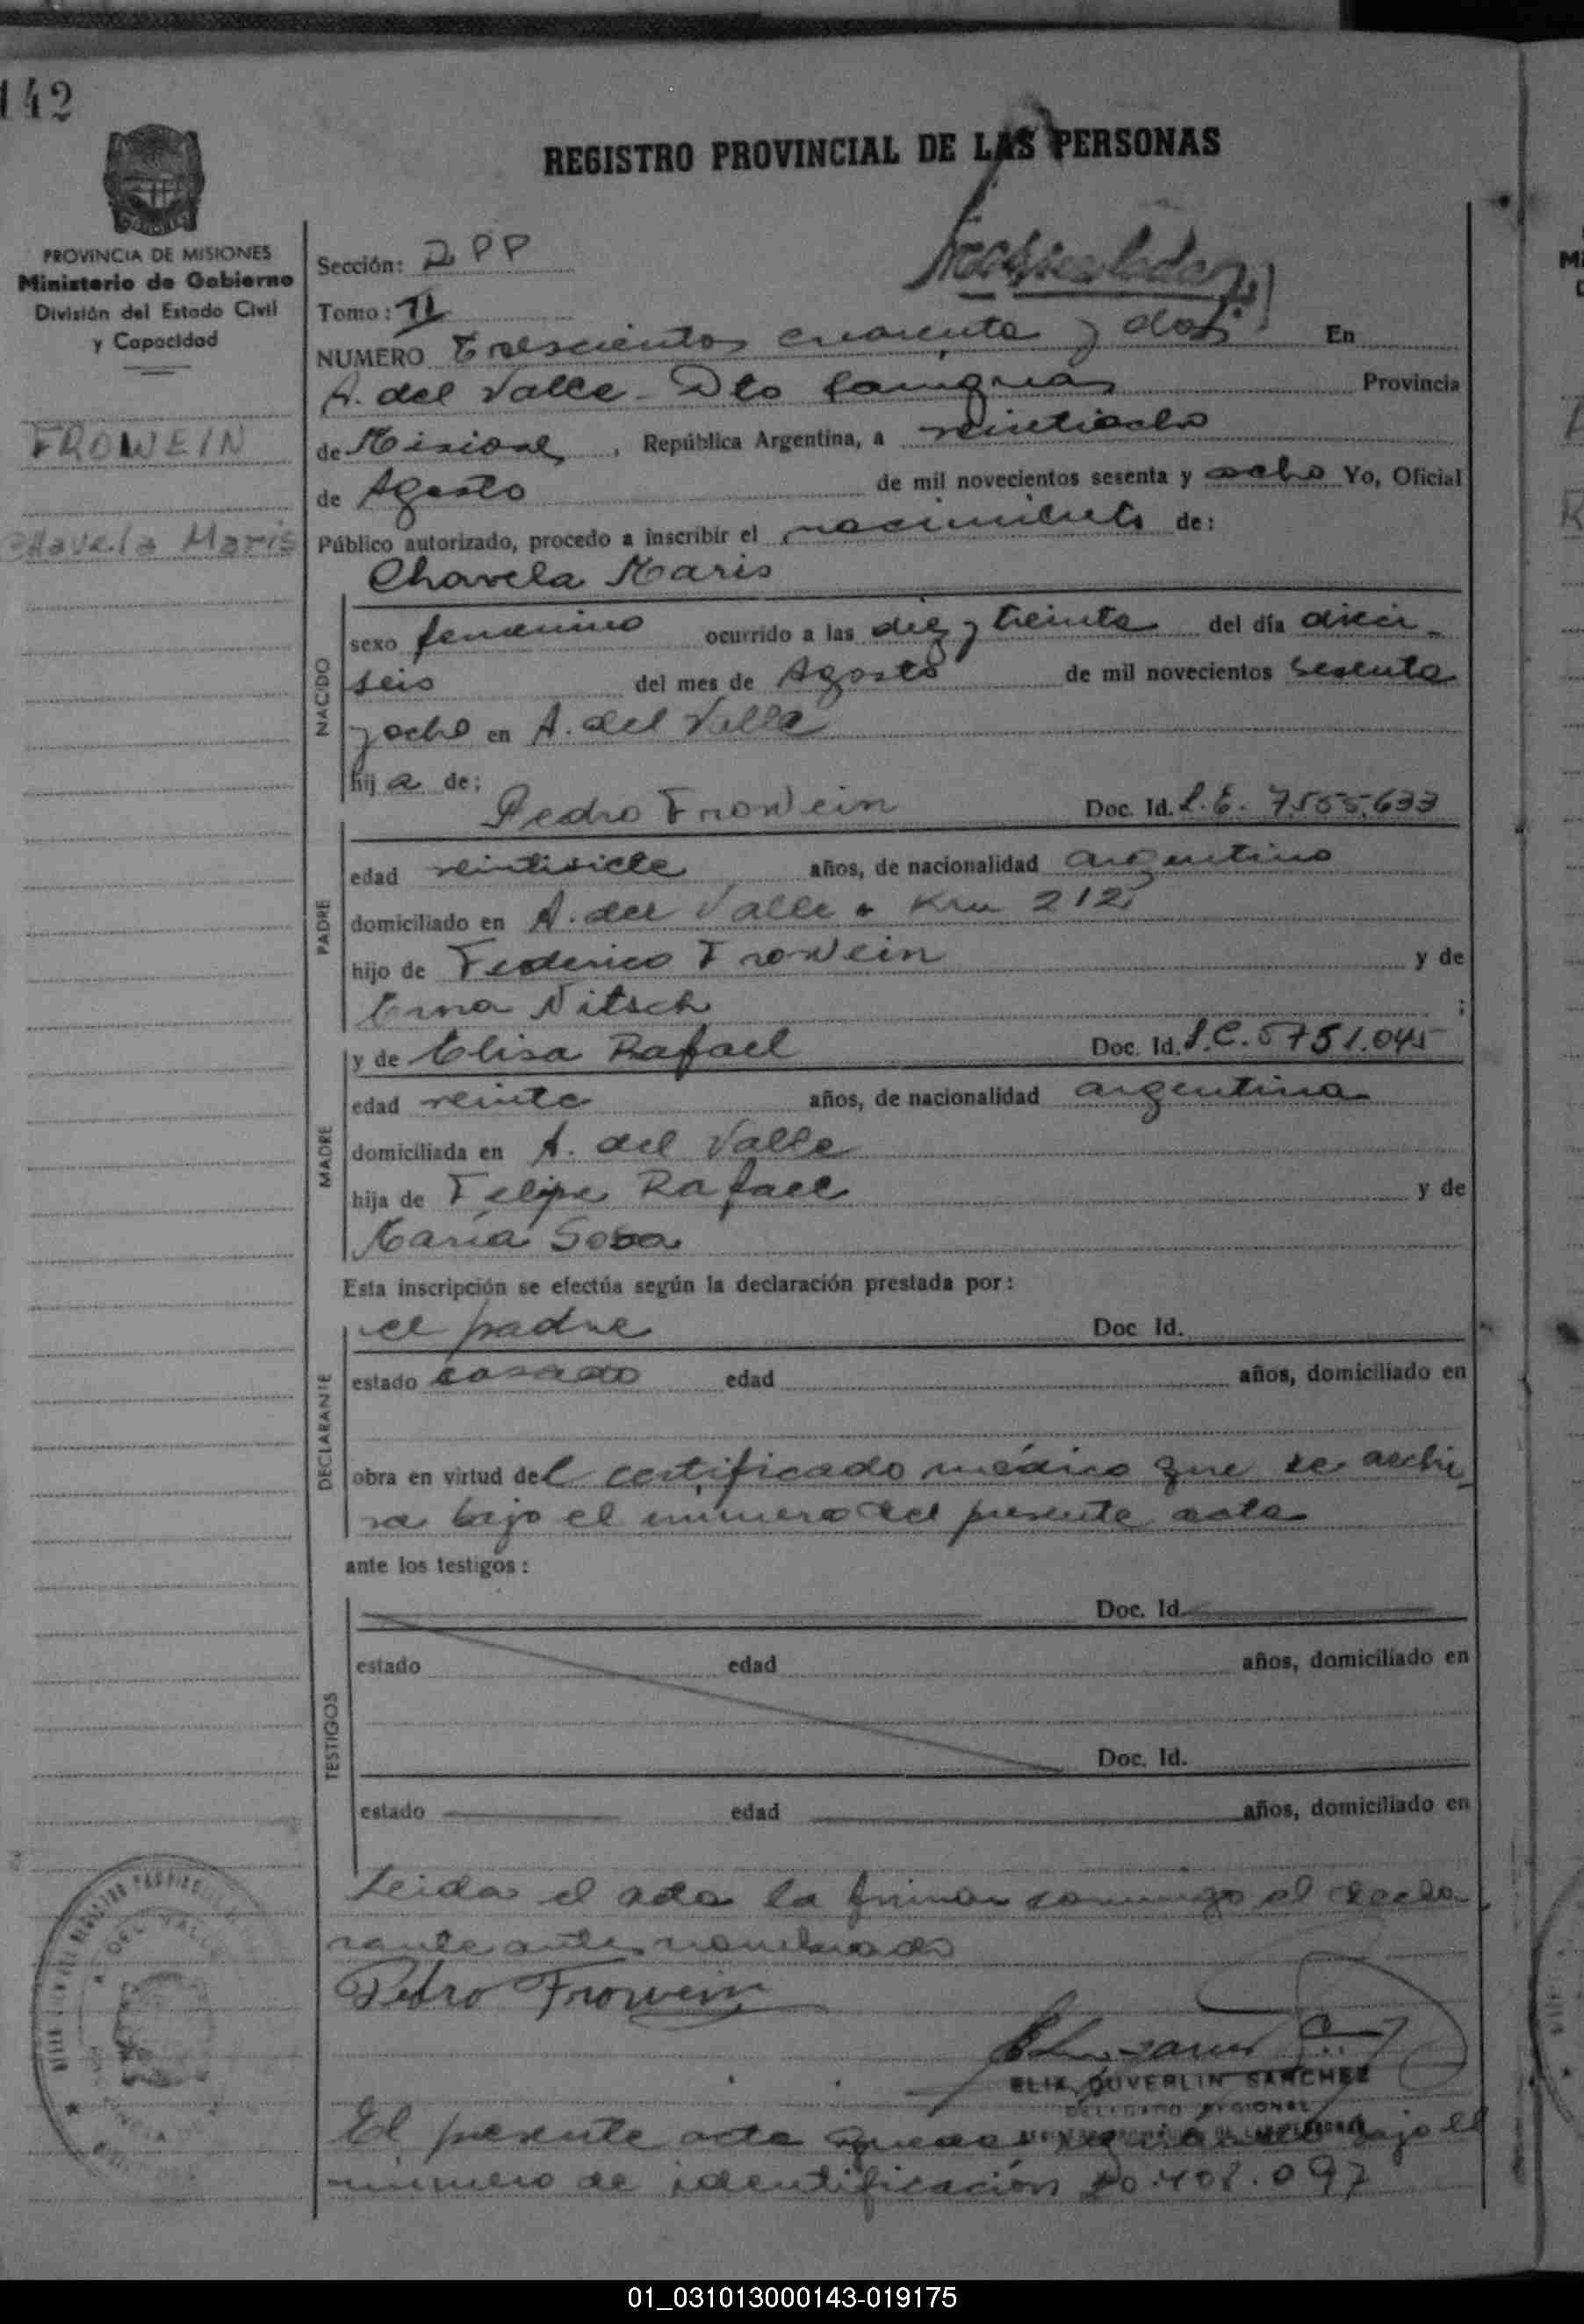 142
REGISTRO PROVINCIAL DE LAS PERSONAS
PROVINCIA DE MISIONES
Ministerio de Gobierno
División del Estado Civil
y Capacidad
FROWEIN
Chavela Maris
Sección: 2 PP
Tomo: II
NUMERO Trescientos cuarenta y dos En
A. del Valle - Dto Cainguas Provincia
de Misiones, República Argentina, a veintiocho
de Agosto de mil novecientos sesenta y ocho Yo, Oficial
Público autorizado, procedo a inscribir el nacimiento de:
Chavela Maris
NACIDO
sexo femenino ocurrido a las diez y treinta del día dieci-
seis del mes de Agosto de mil novecientos sesenta
y ocho en A. del Valle
hija de;
Pedro Frowein Doc. Id. L. E. 7.555.633
PADRE
edad veintisiete años, de nacionalidad argentino
domiciliado en A. del Valle - Km 212
hijo de Federico Frowein y de
Erna Nitsch ;
y de Elisa Rafael Doc. Id. L.C. 5751.045
MADRE
edad veinte años, de nacionalidad argentina
domiciliada en A. del Valle
hija de Felipe Rafael y de
María Sosa
Esta inscripción se efectúa según la declaración prestada por:
el padre Doc Id.
DECLARANTE
estado casado edad años, domiciliado en
obra en virtud del certificado médico que se archi-
va bajo el número del presente acta
ante los testigos:
TESTIGOS
Doc. Id.
estado edad años, domiciliado en
Doc. Id.
estado edad años, domiciliado en
Leida el acta la firman conmigo el decla-
rante antes nombrado
Pedro Frowein
ELIX DUVERLIN SANCHEZ
DELEGADO REGIONAL
El presente acta queda bajo el
número de identificación 20.408.097
DEL VALLE
01_031013000143-019175